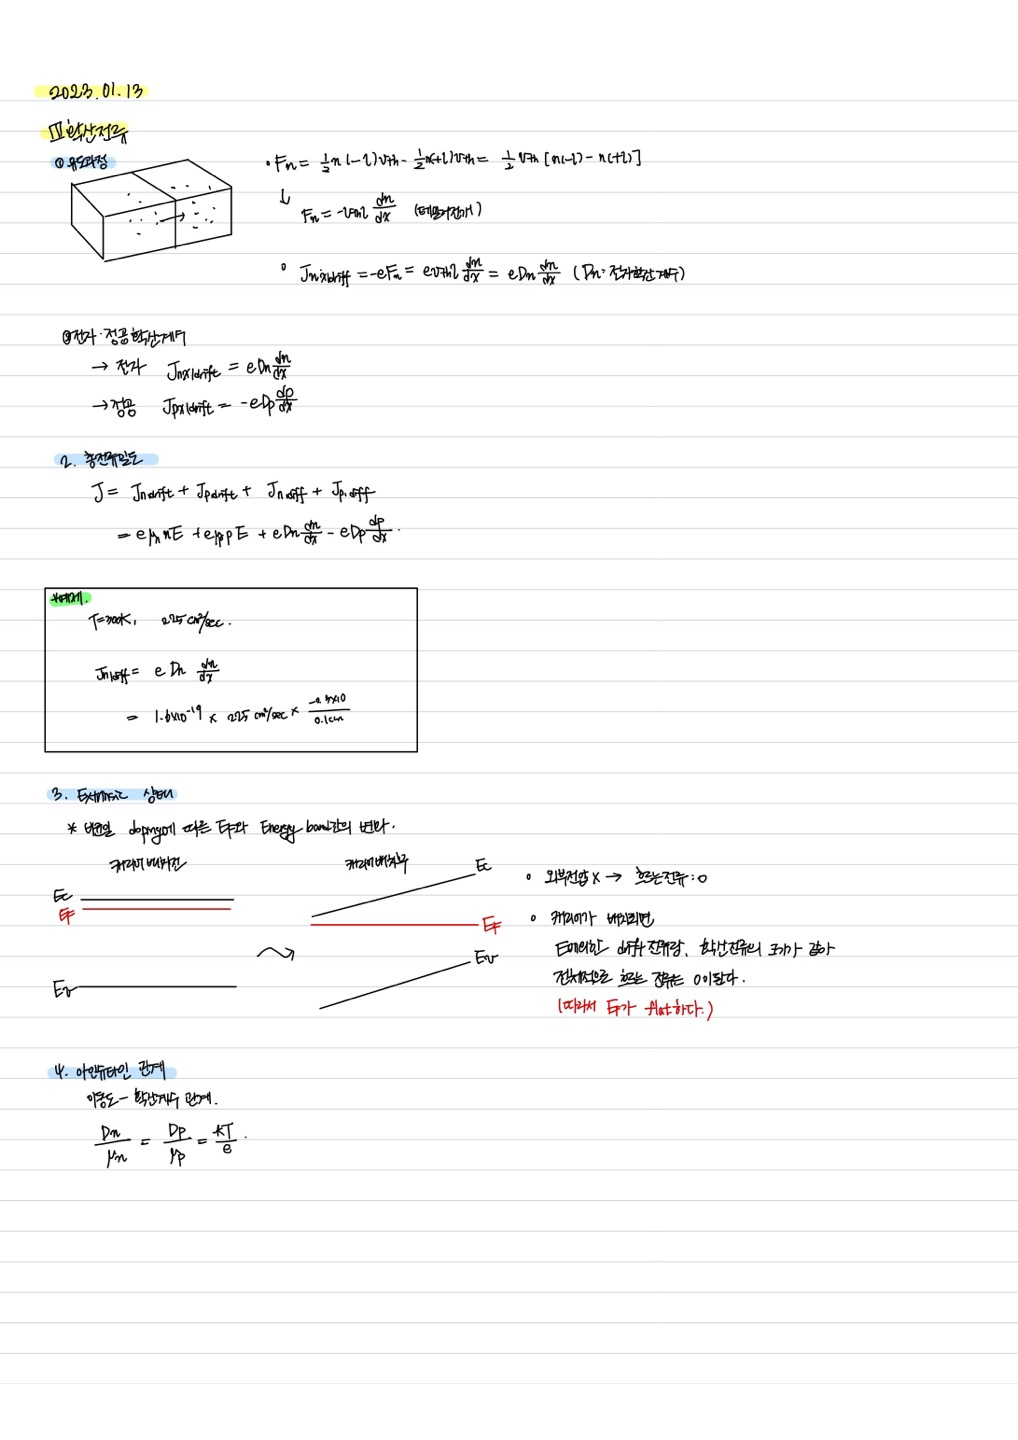 2023.01.13
Ⅲ 확산전류
① 유도과정
• Fn = 1/2 n(-l)vth - 1/2 n(+l)vth = 1/2 vth [n(-l) - n(+l)]
↓ Fn = -vth l dn/dx (테일러전개)
• Jnx|diff = -eFn = evth l dn/dx = eDn dn/dx (Dn: 전자확산계수)
② 전자·정공 확산계수
→ 전자 Jnx|drift = eDn dn/dx
→ 정공 Jpx|drift = -eDp dp/dx
2. 총전류밀도
J = Jn.drift + Jp.drift + Jn.diff + Jp.diff
= eμn nE + eμp pE + eDn dn/dx - eDp dp/dx.
*예제.
T=300K, 225 cm²/sec.
Jn|diff = eDn dn/dx
= 1.6×10⁻¹⁹ × 225 cm²/sec × /0.1cm
3. Extrinsic 상태
* 비균일 doping에 따른 EF와 Energy band간의 변화.
캐리어 배치전
캐리어 배치후
Ec
EF
Ev
Ec
EF
Ev
• 외부전압 X → 흐르는전류: 0
• 캐리어가 배치되면
E에의한 drift 전류랑, 확산전류의 크기가 같아
전체적으로 흐르는 전류는 0이된다.
(따라서 EF가 flat하다.)
4. 아인슈타인 관계
이동도 - 확산계수 관계.
Dn/μn = Dp/μp = kT/e.